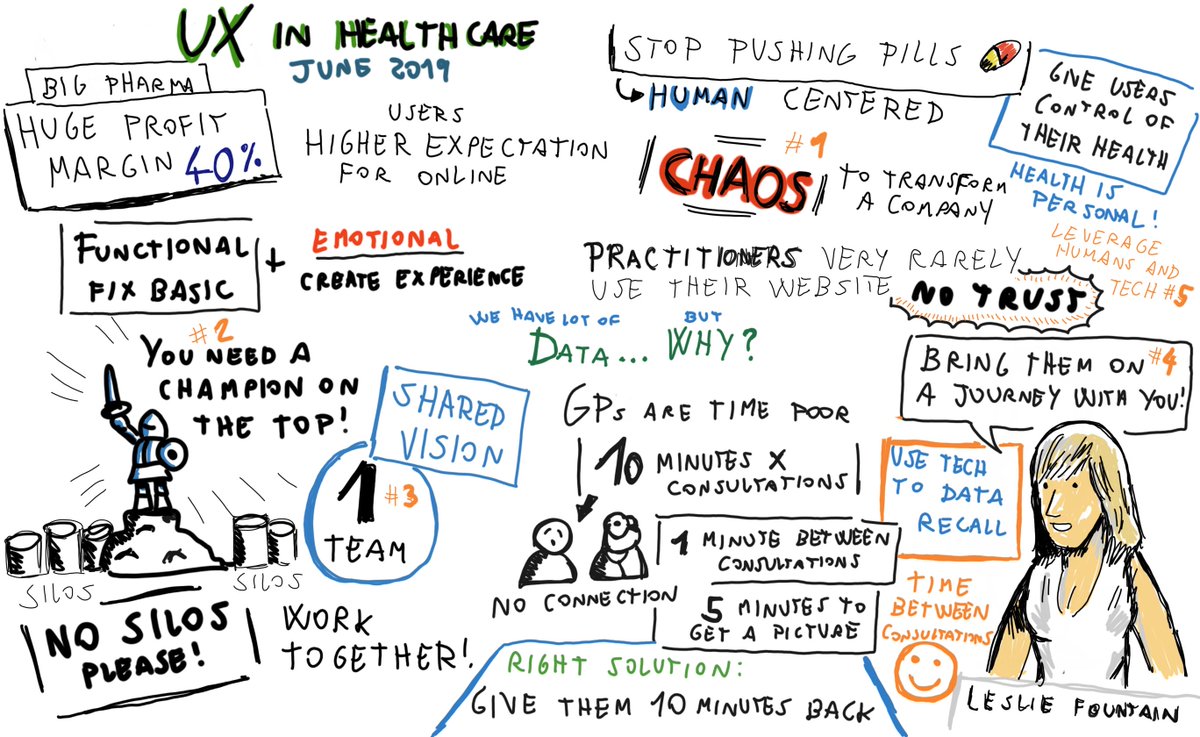 UX IN HEALTHCARE
JUNE 2019
BIG PHARMA
HUGE PROFIT
MARGIN 40%
USERS
HIGHER EXPECTATION
FOR ONLINE
FUNCTIONAL
FIX BASIC
+
EMOTIONAL
CREATE EXPERIENCE
#2
YOU NEED A
CHAMPION ON
THE TOP!
SILOS
SILOS
NO SILOS
PLEASE!
WORK
TOGETHER!
SHARED
VISION
1 #3
TEAM
STOP PUSHING PILLS
HUMAN CENTERED
#1
CHAOS
TO TRANSFORM
A COMPANY
GIVE USERS
CONTROL OF
THEIR HEALTH
HEALTH IS
PERSONAL!
LEVERAGE
HUMANS AND
TECH #5
PRACTITIONERS VERY RARELY
USE THEIR WEBSITE
NO TRUST
WE HAVE LOT OF
DATA...
BUT
WHY?
GPs ARE TIME POOR
10 MINUTES X
CONSULTATIONS
NO CONNECTION
1 MINUTE BETWEEN
CONSULTATIONS
5 MINUTES TO
GET A PICTURE
RIGHT SOLUTION:
GIVE THEM 10 MINUTES BACK
BRING THEM ON #4
A JOURNEY WITH YOU!
USE TECH
TO DATA
RECALL
TIME
BETWEEN
CONSULTATIONS
LESLIE FOUNTAIN